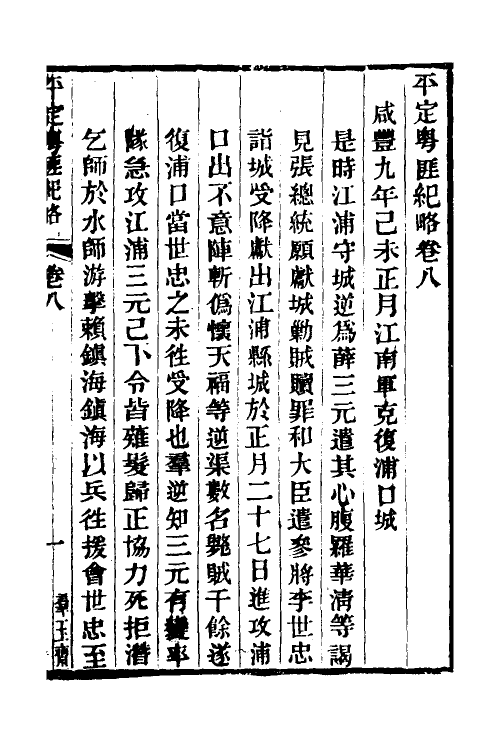 平定粤匪紀略卷八
咸豐九年己未正月江南軍克復浦口城
是時江浦守城逆為薛三元遣其心腹羅華清等謁
見張總統願獻城勦賊贖罪和大臣遣參將李世忠
詣城受降獻出江浦縣城於正月二十七日進攻浦
口出不意陣斬偽懷天福等逆渠數名斃賊千餘遂
復浦口當世忠之未徃受降也羣逆知三元有變率
隊急攻江浦三元己下令皆薙髮歸正協力死拒潛
乞師於水師游擊賴鎮海鎮海以兵徃援會世忠至
平定粤匪紀略
卷八
一
羣玉齋